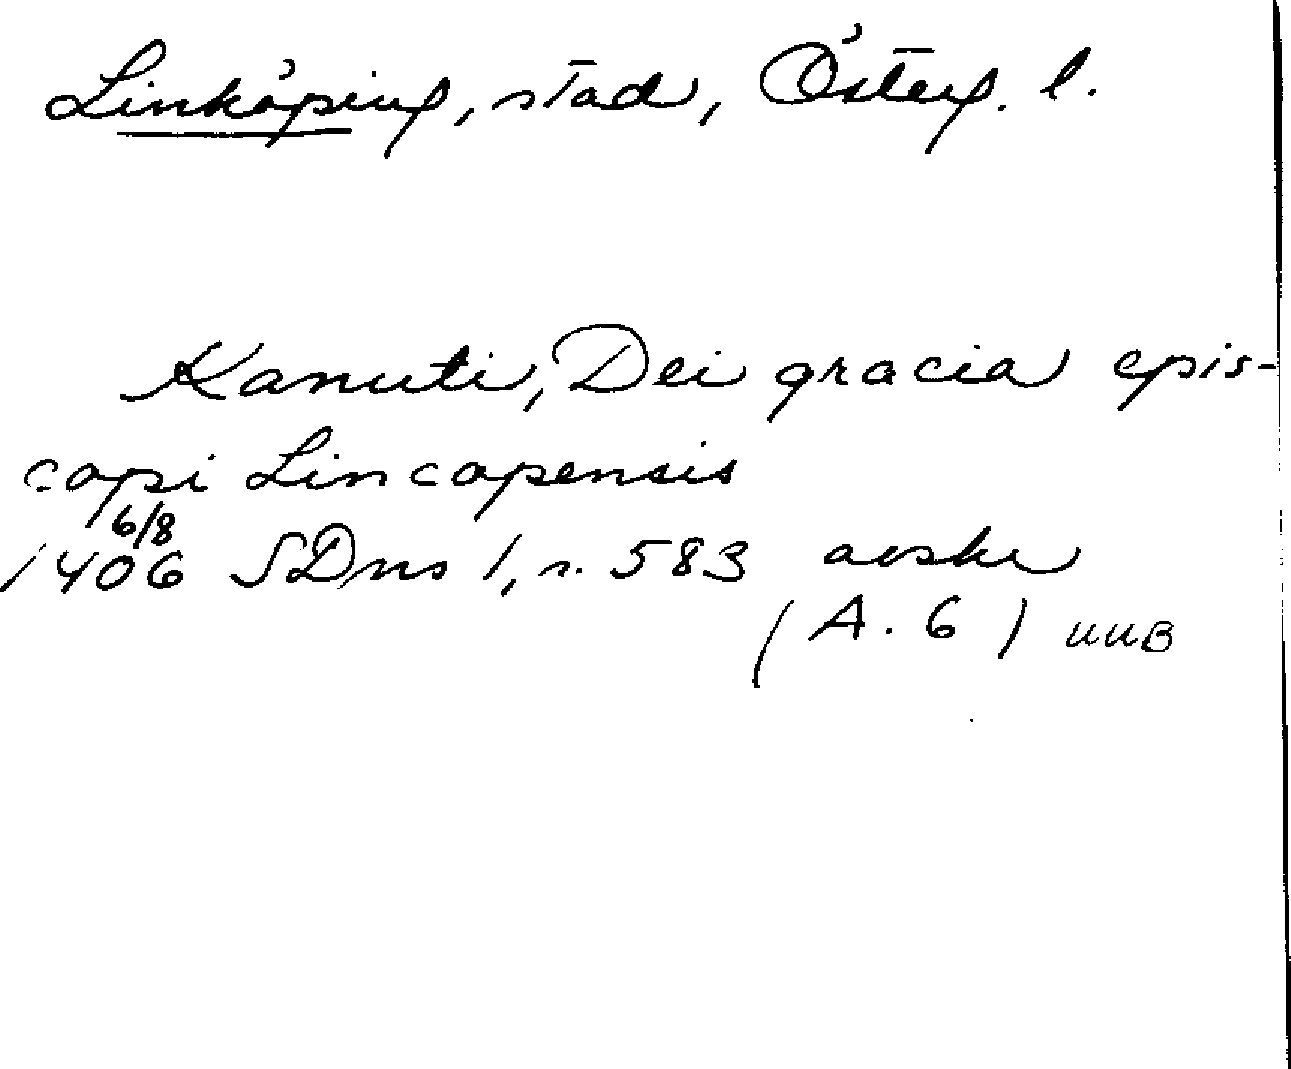 Linköping, stad, Österg. l.
Kanuti, Dei gracia epis-
copi Lincopensis
6/8
1406 SDns 1, n. 583 avskr
(A. 6) UUB